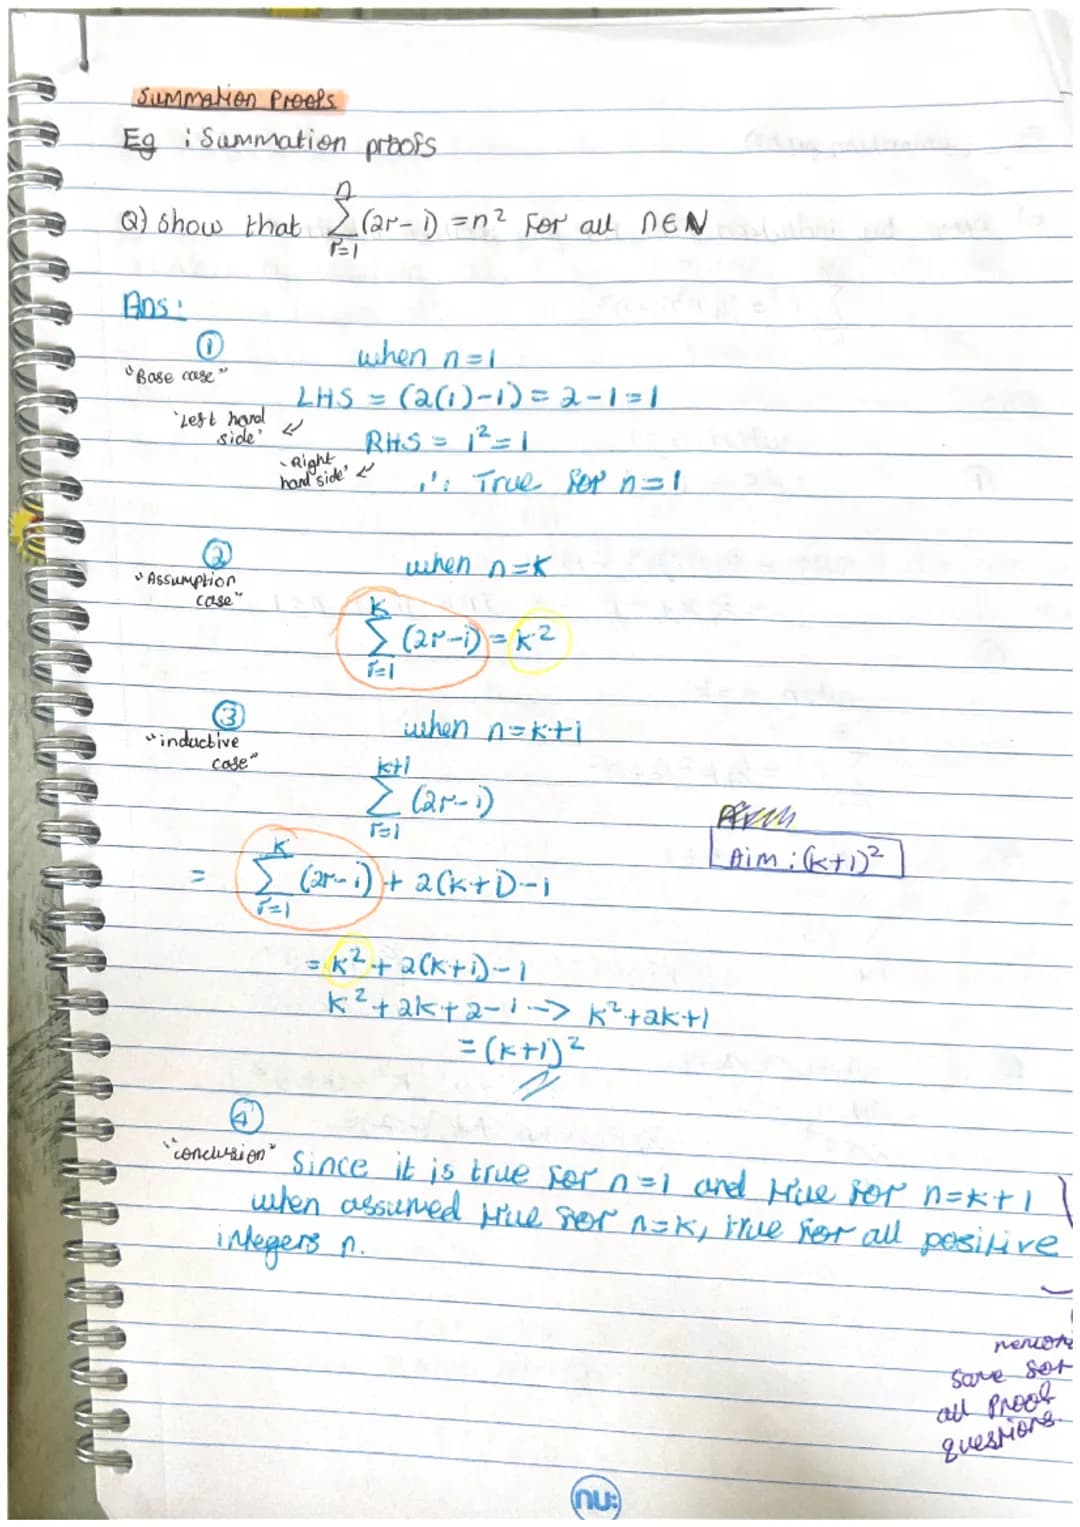 Summation Proofs
Eg : Summation proofs
Q) show that $\sum_{r=1}^{n}(2r-1) = n^2$ for all n∈N
Ans:
① when n=1
"Base case"
LHS = (2(1)-1) = 2-1=1
'Left hand side' ↙
RHS = 1² = 1
'Right hand side' ↙
∴ True for n=1
② when n=k
"Assumption case"
$\sum_{r=1}^{k}(2r-1) = k^2$
③ when n=k+1
"inductive case"
$\sum_{r=1}^{k+1}(2r-1)$
Aim : (k+1)²
= $\sum_{r=1}^{k}(2r-1) + 2(k+1)-1$
= k² + 2(k+1)-1
k² + 2k+2-1 -> k²+2k+1
= (k+1)²
④
"conclusion" Since it is true for n=1 and true for n=k+1
when assumed true for n=k, true for all positive
integers n.
same for
all proof
questions.
nu: